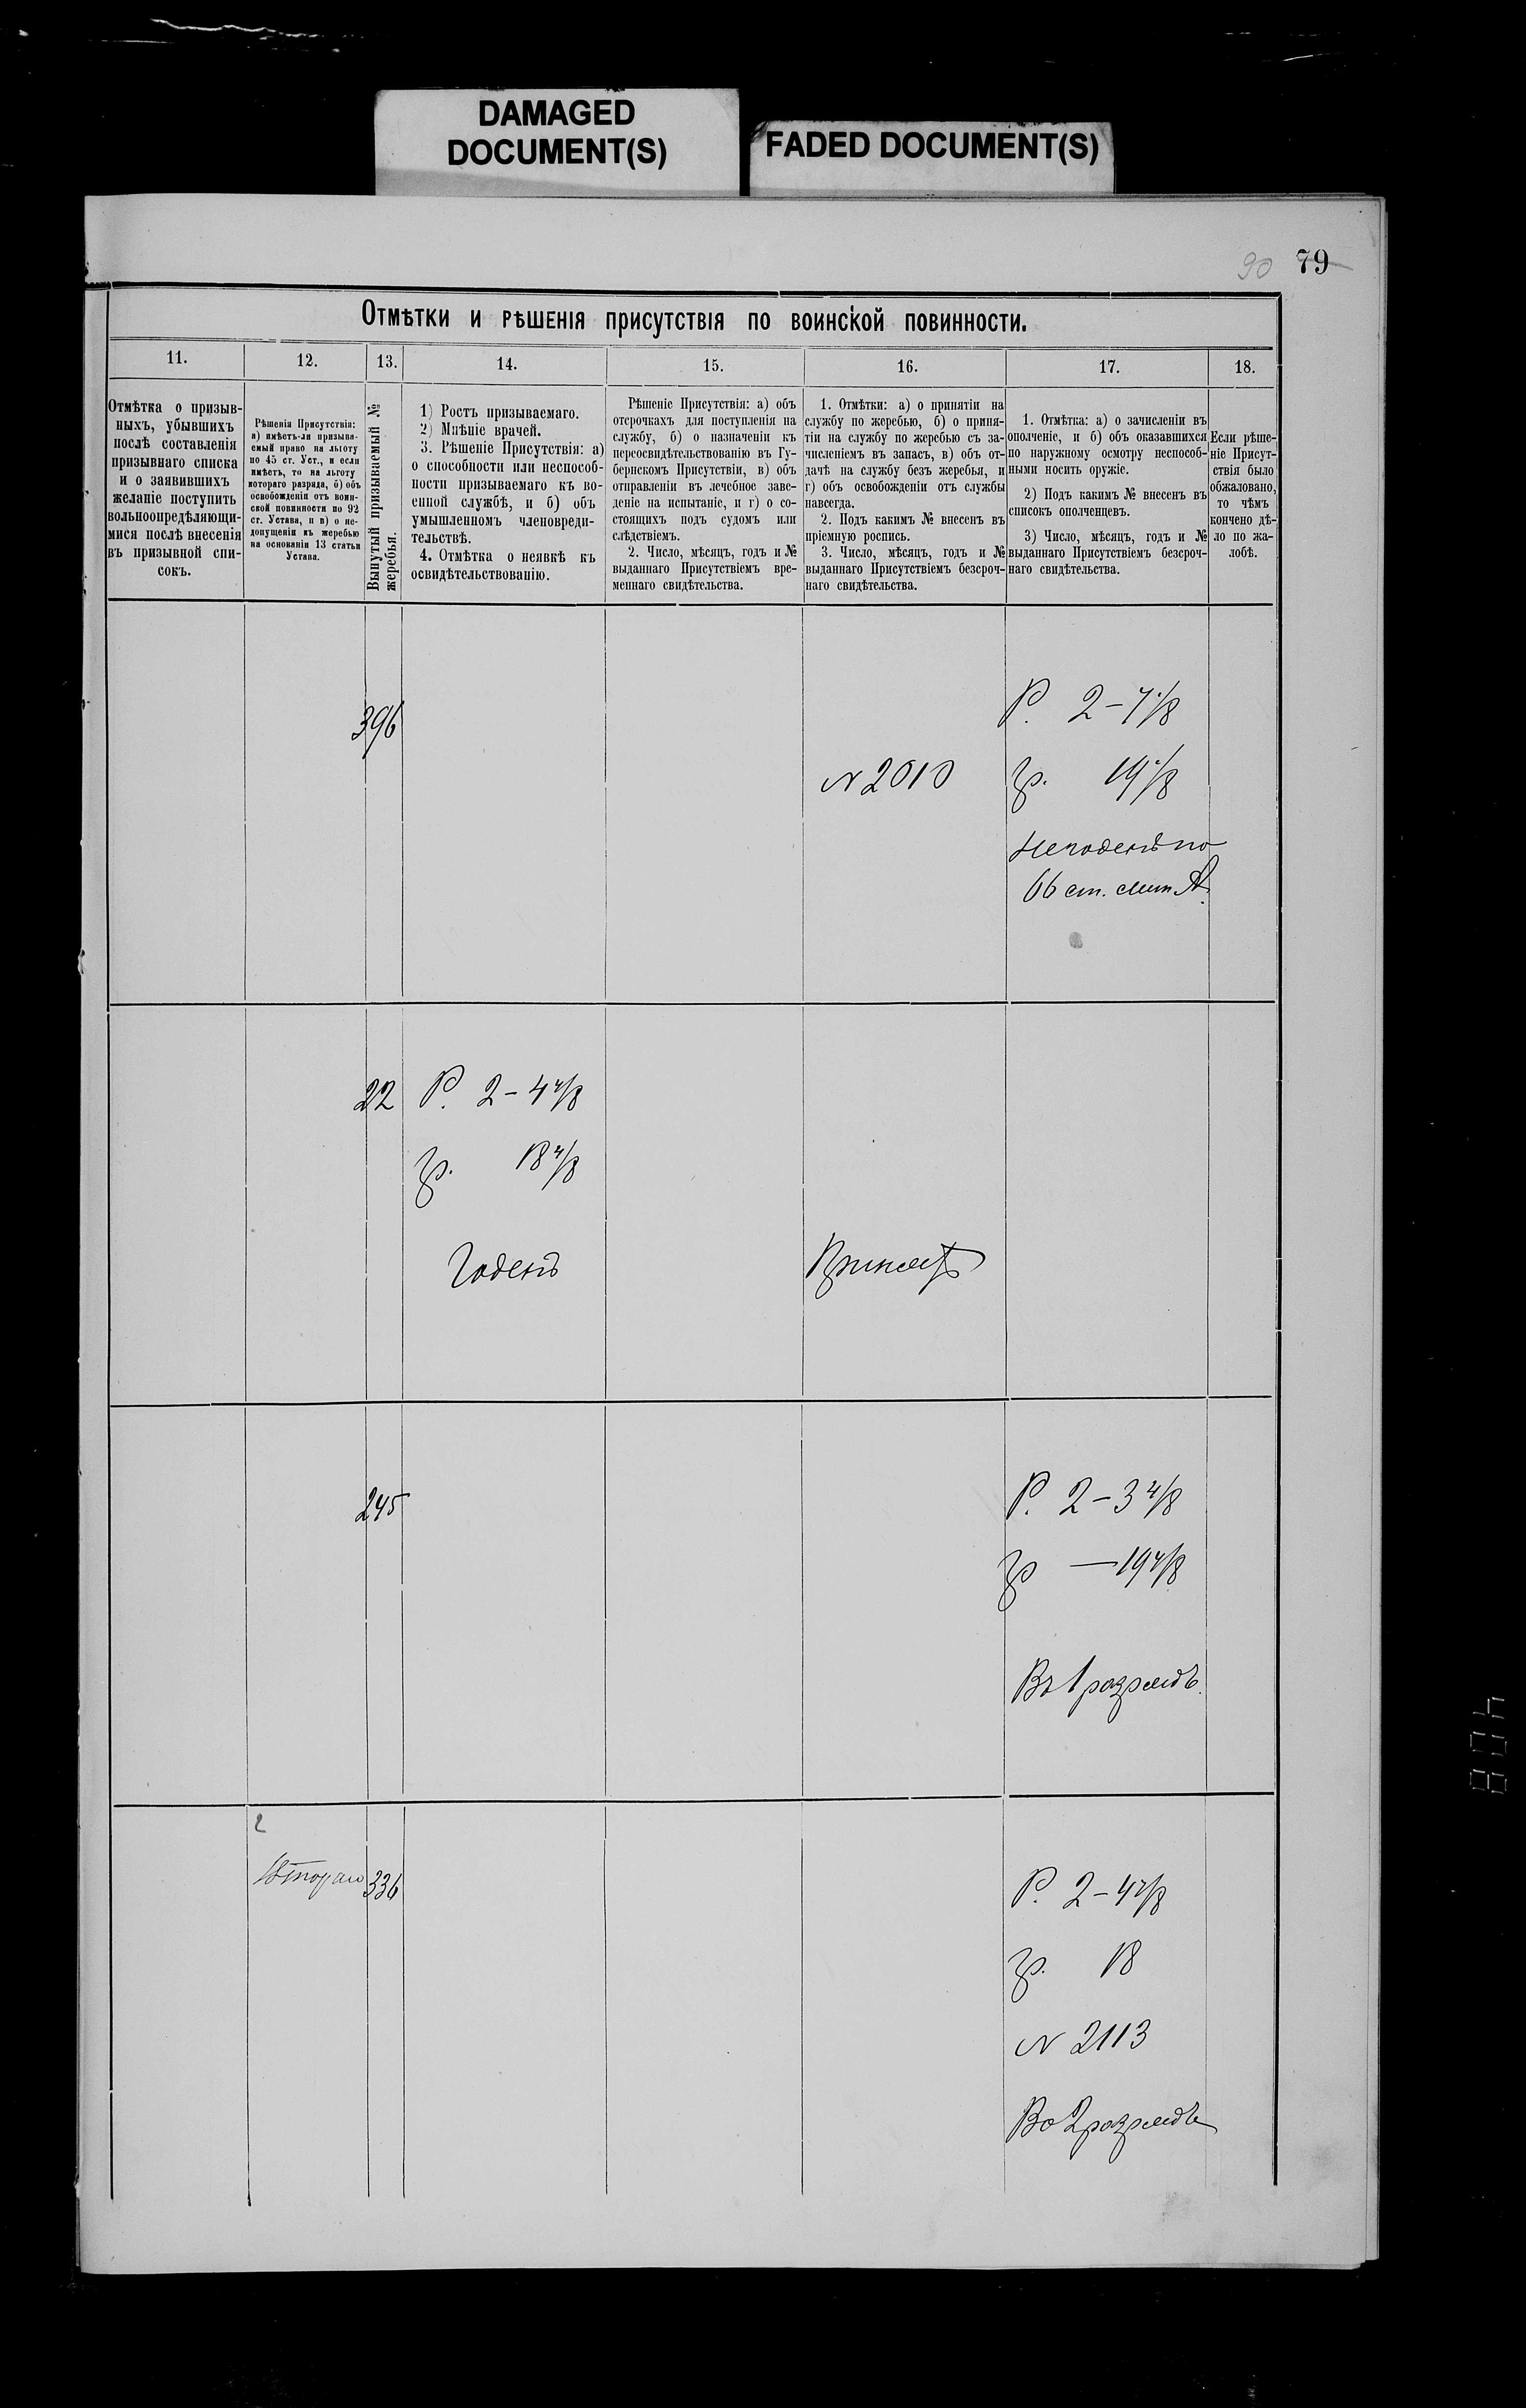 DAMAGED
DOCUMENT(S)
FADED DOCUMENT(S)
90 79
Отмѣтки и рѣшенія присутствія по воинской повинности.
11. 12. 13. 14. 15. 16. 17. 18.
Отмѣтка о призыв-
ныхъ, убывшихъ
послѣ составленія
призывнаго списка
и о заявившихъ
желаніе поступить
вольноопредѣляющи-
мися послѣ внесенія
въ призывной спи-
сокъ.
Рѣшенія Присутствія:
а) имѣетъ-ли призыва-
емый право на льготу
по 45 ст. Уст., и если
имѣетъ, то на льготу
котораго разряда, б) объ
освобожденіи отъ воин-
ской повинности по 92
ст. Устава, и в) о не-
допущеніи къ жеребью
на основаніи 13 статьи
Устава.
Вынутый призываемый №
жеребья.
1) Ростъ призываемаго.
2) Мнѣніе врачей.
3. Рѣшеніе Присутствія: а)
о способности или неспособ-
ности призываемаго къ во-
енной службѣ, и б) объ
умышленномъ членовреди-
тельствѣ.
4. Отмѣтка о неявкѣ къ
освидѣтельствованію.
Рѣшеніе Присутствія: а) объ
отсрочкахъ для поступленія на
службу, б) о назначеніи къ
переосвидѣтельствованію въ Гу-
бернскомъ Присутствіи, в) объ
отправленіи въ лечебное заве-
деніе на испытаніе, и г) о со-
стоящихъ подъ судомъ или
слѣдствіемъ.
2. Число, мѣсяцъ, годъ и №
выданнаго Присутствіемъ вре-
меннаго свидѣтельства.
1. Отмѣтки: а) о принятіи на
службу по жеребью, б) о приня-
тіи на службу по жеребью съ за-
численіемъ въ запасъ, в) объ от-
дачѣ на службу безъ жеребья, и
г) объ освобожденіи отъ службы
навсегда.
2. Подъ какимъ № внесенъ въ
пріемную роспись.
3. Число, мѣсяцъ, годъ и №
выданнаго Присутствіемъ безсроч-
наго свидѣтельства.
1. Отмѣтка: а) о зачисленіи въ
ополченіе, и б) объ оказавшихся
по наружному осмотру неспособ-
ными носить оружіе.
2) Подъ какимъ № внесенъ въ
списокъ ополченцевъ.
3) Число, мѣсяцъ, годъ и №
выданнаго Присутствіемъ безсроч-
наго свидѣтельства.
Если рѣше-
ніе Присут-
ствія было
обжаловано,
то чѣмъ
кончено дѣ-
ло по жа-
лобѣ.
396
N 2010
Р. 2-
гр.
Негоденъ по
66 ст. лит А.
22
Р. 2-4 4/8
гр. 18 4/8
Годенъ
Принятъ
245
Р. 2-3 4/8
гр — 19 4/8
Въ 1 разрядъ.
2
Втораго
336
Р. 2-4
гр. 18
N 2113
Во 2 разрядъ
408